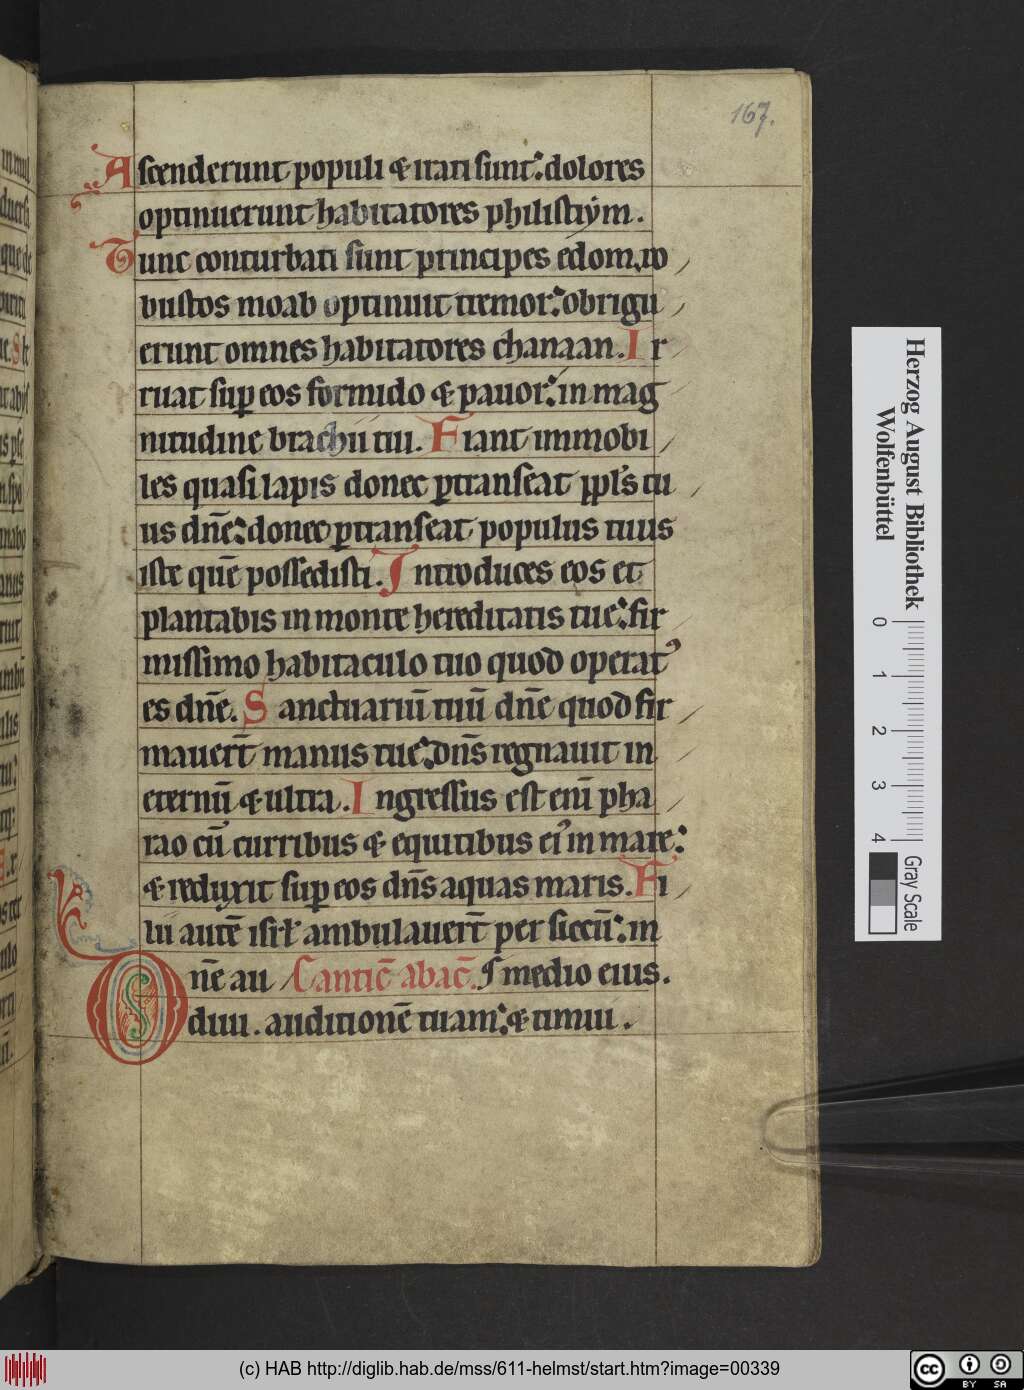 167.
Ascenderunt populi & irati sunt: dolores
optinuerunt habitatores philistiym.
Tunc conturbati sunt principes edom, ro
bustos moab optinuit tremor: obrigu
erunt omnes habitatores chanaan. Ir
ruat sup eos formido & pauor: in mag
nitudine brachii tui. Fiant immobi
les quasi lapis donec ptranseat ppl's tu
us dn̄e: donec ptranseat populus tuus
iste quē possedisti. Introduces eos et
plantabis in monte hereditatis tue: fir
missimo habitaculo tuo quod operat᾽
es dn̄e. Sanctuariū tuū dn̄e quod fir
mauert̄ manus tue: dn̄s regnauit in
eternū & ultra. Ingressus est eni̅ pha
rao cū curribus & equitibus ei᾽ in mare:
& reduxit sup eos dn̄s aquas maris. Fi
lii autē isrł ambulauert̄ per siccū: in
medio eius.
Canticē abac̄.
Dn̄e au
diui. auditionē tuam: & timui.
Herzog August Bibliothek
Wolfenbüttel
0 1 2 3 4
Gray Scale
(c) HAB http://diglib.hab.de/mss/611-helmst/start.htm?image=00339
cc BY SA